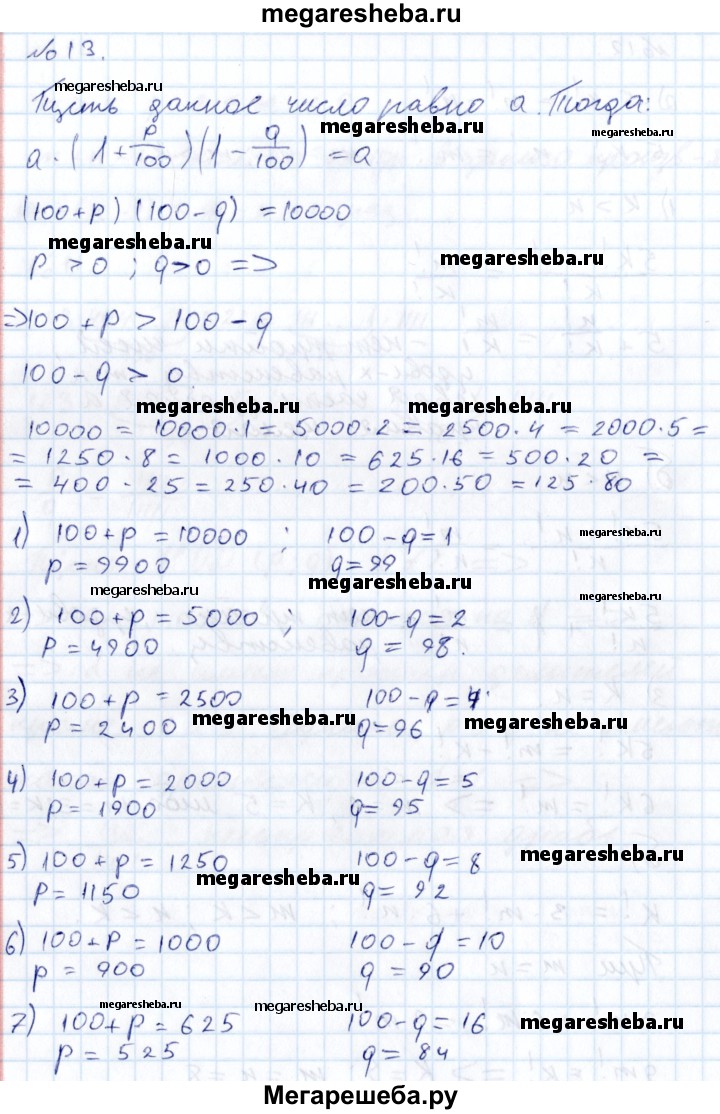 megaresheba.ru
№13.
megaresheba.ru
Пусть данное число равно a. Тогда:
megaresheba.ru megaresheba.ru
a · (1 + p/100)(1 - q/100) = a
(100+p)(100-q) = 10000
megaresheba.ru megaresheba.ru
p > 0 ; q>0 =>
=> 100 + p > 100 - q
100 - q > 0
megaresheba.ru megaresheba.ru
10000 = 10000·1 = 5000·2 = 2500·4 = 2000·5 =
= 1250·8 = 1000·10 = 625·16 = 500·20 =
= 400·25 = 250·40 = 200·50 = 125·80
1) 100+p = 10000 ; 100-q=1
megaresheba.ru
p = 9900 q=99
megaresheba.ru
megaresheba.ru megaresheba.ru
2) 100+p = 5000 ; 100-q=2
p = 4900 q = 98.
3) 100+p = 2500 100-q=4
megaresheba.ru megaresheba.ru
p = 2400 q=96
4) 100+p = 2000 100-q=5
p = 1900 q= 95
5) 100+p = 1250 100-q=8
megaresheba.ru megaresheba.ru
p= 1150 q= 92
6) 100+p = 1000 100-q=10
p = 900 q= 90
megaresheba.ru megaresheba.ru
7) 100+p = 625 100-q= 16
p = 525 q= 84
Мегарешеба.ру